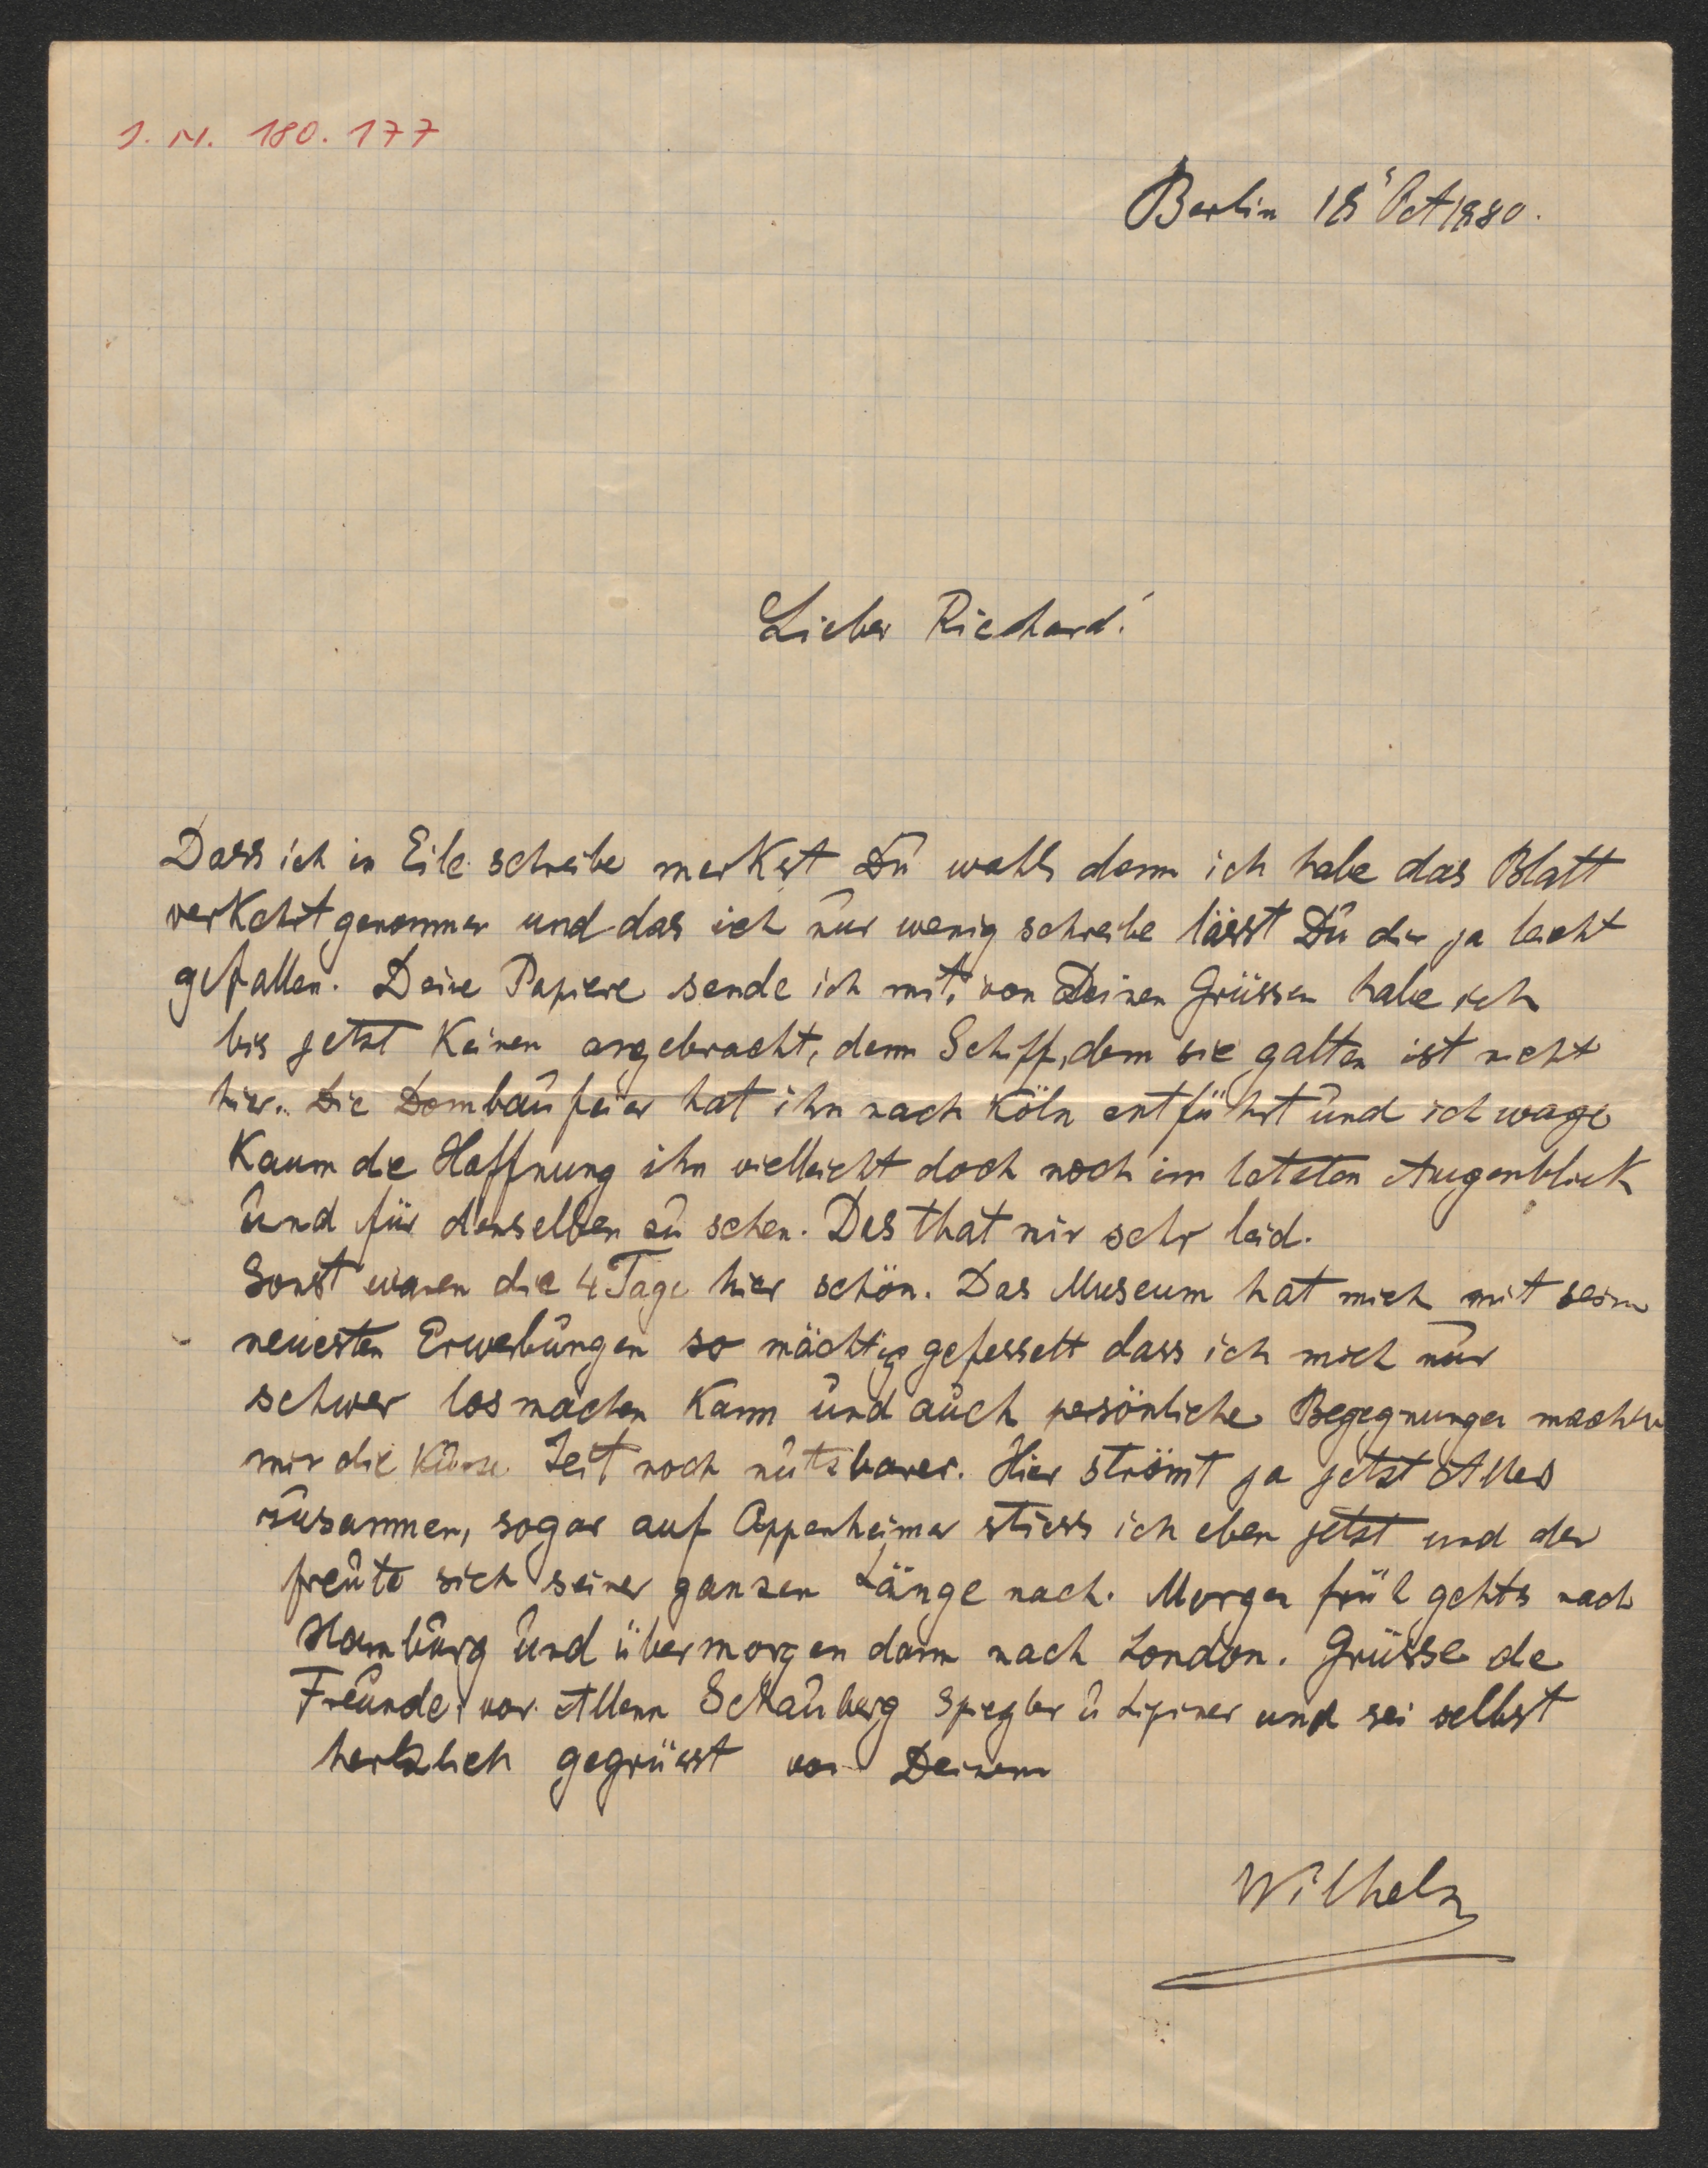 J. N. 180.177
Berlin 18 Oct 1880.
Lieber Richard!
Dass ich in Eile schreibe merkst Du wohl denn ich habe das Blatt
verkehrt genommen und das ich nur wenig schreibe lässt Du dir ja leicht
gefallen. Deine Papiere sende ich mit, von Deinen Grüssen habe ich
bis jetzt keinen angebracht, denn Schiff, dem sie galten ist nicht
hier. Die Dombaufeier hat ihn nach Köln entführt und ich wage
kaum die Hoffnung ihn vielleicht doch noch im letzten Augenblick
und für denselben zu sehen. Das that mir sehr leid.
Sonst waren die 4 Tage hier schön. Das Museum hat mich mit seinen
neuesten Erwerbungen so mächtig gefesselt dass ich mich nur
schwer losmachen kann und auch persönliche Begegnungen machen
mir die kurze Zeit noch nutzbarer. Hier strömt ja jetzt Alles
zusammen, sogar auf Oppenheimer stiess ich eben jetzt und der
freute sich seiner ganzen Länge nach. Morgen früh gehts nach
Hamburg und übermorgen dann nach London. Grüsse die
Freunde, vor Allem Schauberg Spiegler u Lipiner und sei selbst
herzlich gegrüsst von Deinem
Wilhelm